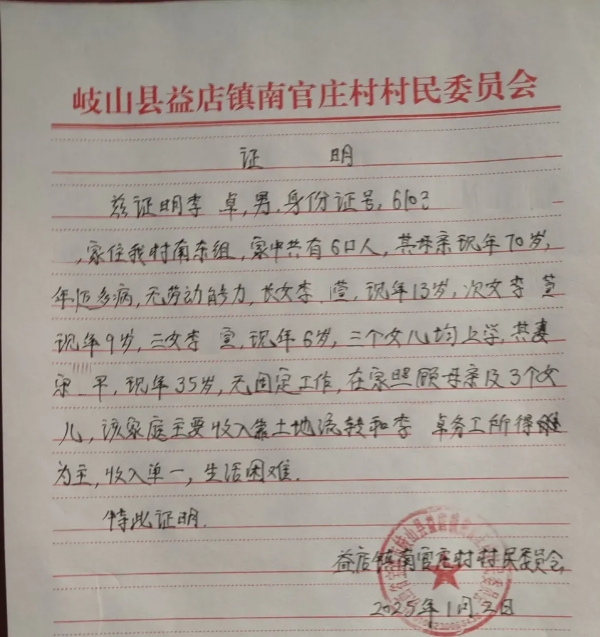 岐山县益店镇南官庄村村民委员会
证 明
兹证明李 卓,男,身份证号,6103
,家住我村南东组,家中共有6口人,其母亲现年70岁,
年迈多病,无劳动能力,长女李 萱,现年13岁,次女李 萱
现年9岁,三女李 宣,现年6岁,三个女儿均上学,其妻
宋 平,现年35岁,无固定工作,在家照顾母亲及3个女
儿,该家庭主要收入靠土地流转和李 卓务工所得
为主,收入单一,生活困难.
特此证明.
益店镇南官庄村村民委员会
2025年1月2日